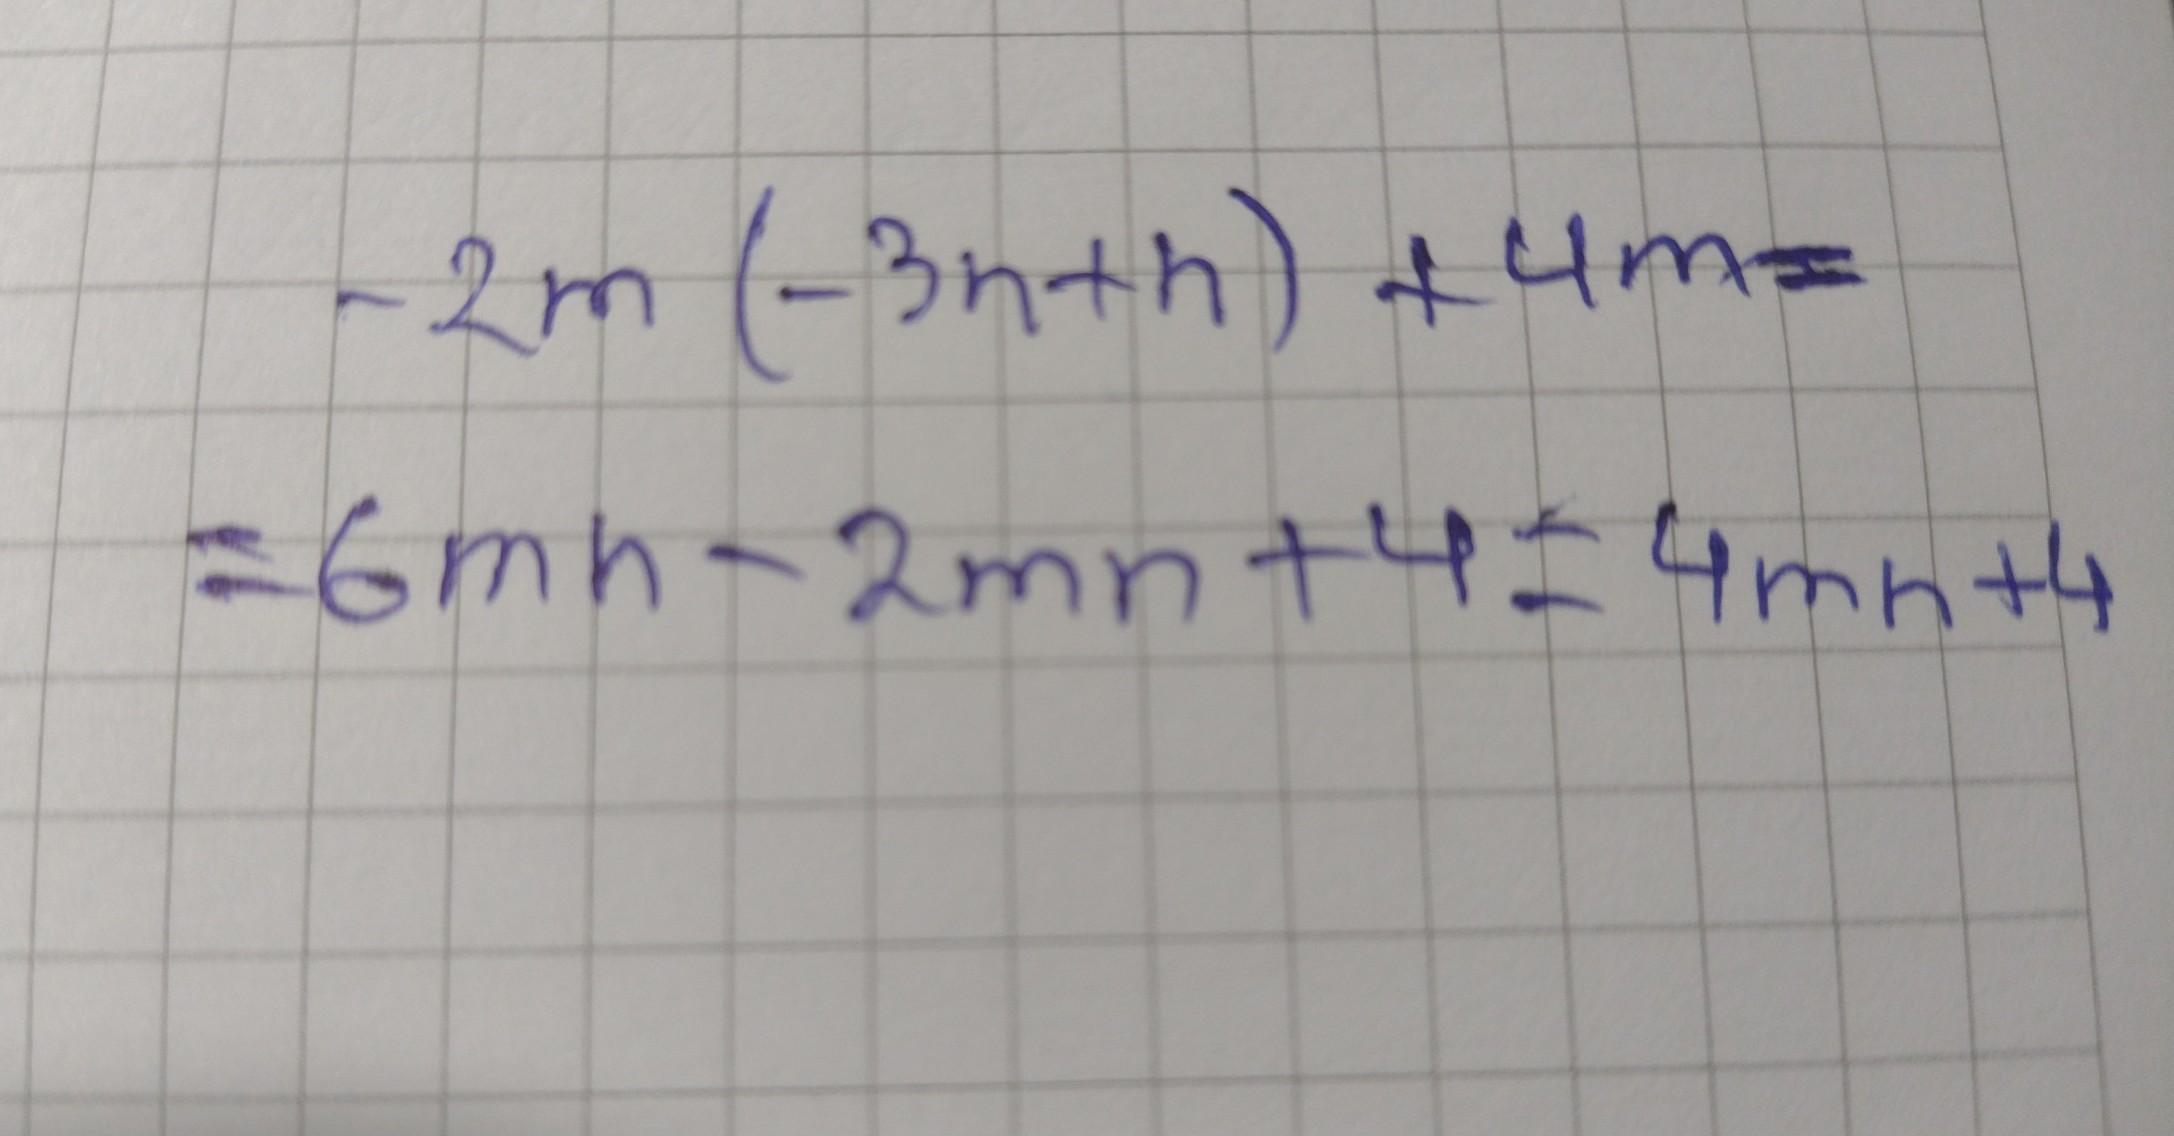 -2m (-3n+n) + 4m=
=6mn - 2mn + 4 = 4mn+4